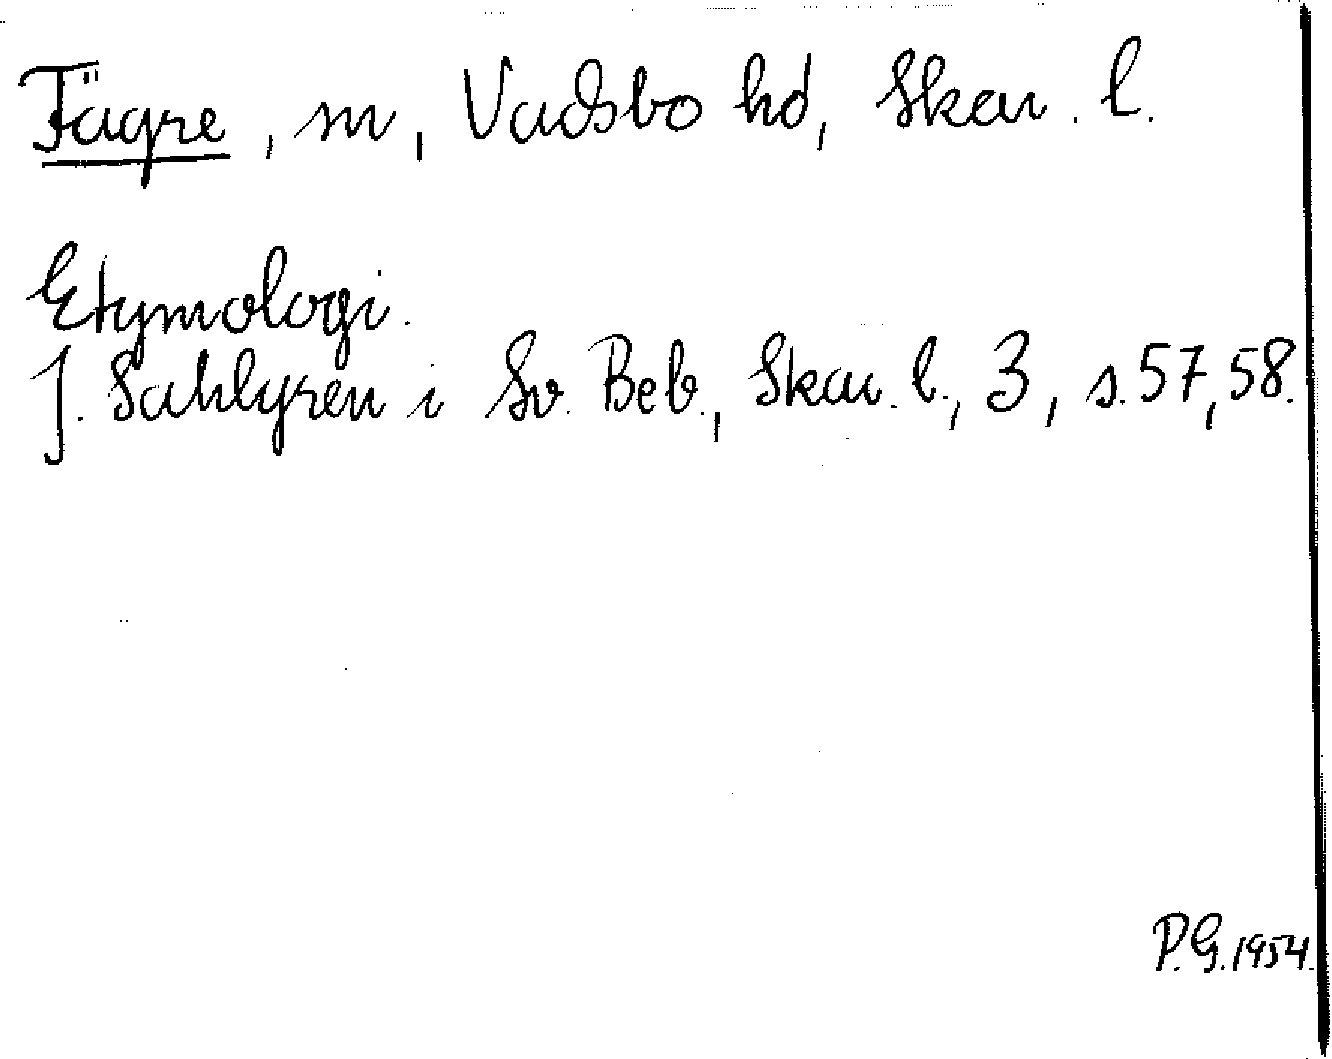 Fägre, sn, Vadsbo hd, Skar. l.
Etymologi.
J. Sahlgren i Sv. Beb., Skar. l., 3, s. 57, 58.
P.G. 1954.